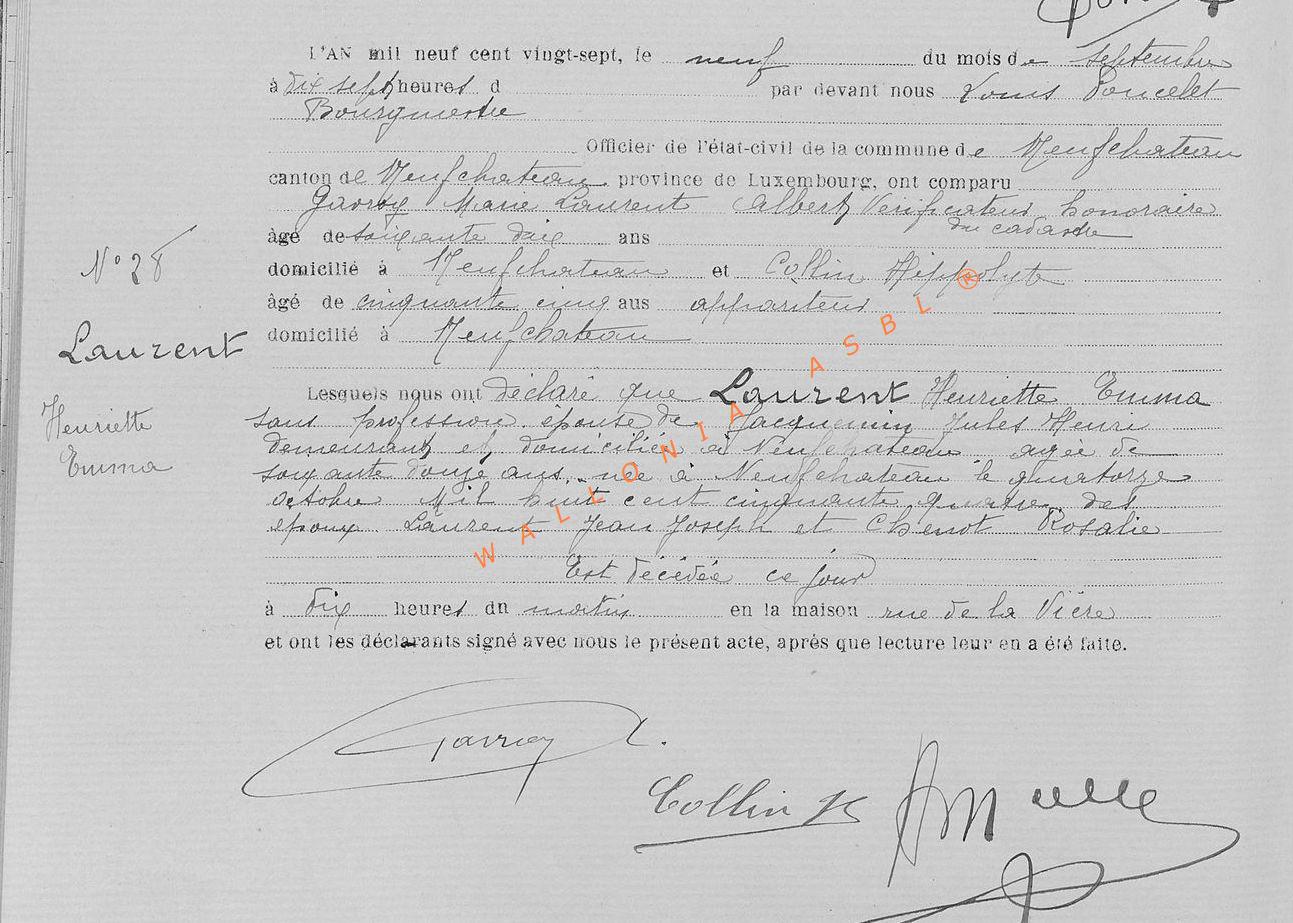 L'AN mil neuf cent vingt-sept, le neuf du mois de septembre
à dix sept heures d par devant nous Louis Poncelet
Bourgmestre
Officier de l'état-civil de la commune de Neufchateau
canton de Neufchateau province de Luxembourg, ont comparu
Gavroy Marie Laurent Albert Verificateur honoraire
du cadastre
âgé de soixante dix ans
N° 28
domicilié à Neufchateau et Collin Hippolyte
âgé de cinquante cinq ans appariteur
domicilié à Neufchateau
Laurent
Henriette
Emma
Lesquels nous ont déclaré que Laurent Henriette Emma
sans profession épouse de Jacquemin Jules Henri
demeurant et domiciliée à Neufchateau agée de
soixante douze ans, née à Neufchateau le quatorze
octobre Mil huit cent cinquante quatre des
époux Laurent Jean Joseph et Chenot Rosalie
Est décédée ce jour
à dix heures du matin en la maison rue de la Vière
et ont les déclarants signé avec nous le présent acte, après que lecture leur en a été faite.
WALLONIA ASBL ®
Gavroy
Collin H